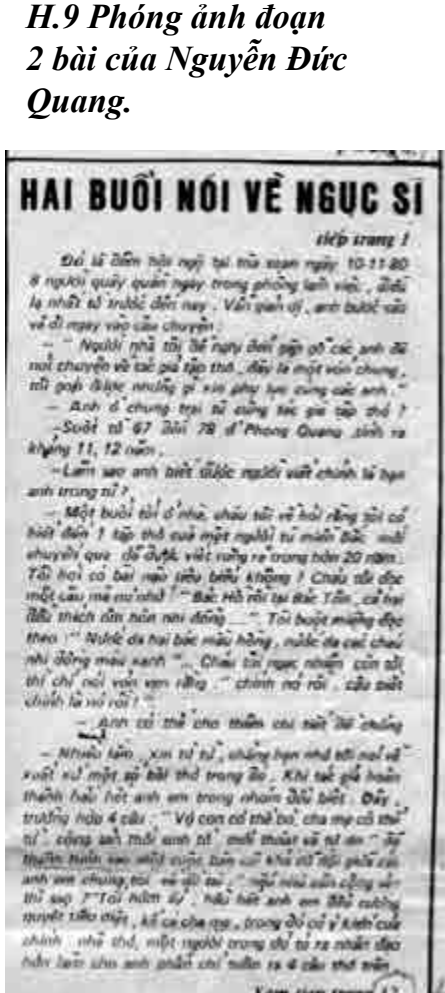 H.9 Phóng ảnh đoạn
2 bài của Nguyễn Đức
Quang.
HAI BUỔI NÓI VỀ NGỤC SĨ
tiếp trang 1
ngày 10-11-80
người quây quần ngay trong phòng làm việc, điều
lạ nhất từ trước đến nay. Vẫn giản dị, anh bước vào
về đi ngay vào câu chuyện:
- " Người nhà tôi đề nghị đến gặp gỡ các anh để
nói chuyện về tác giả tập thơ, đây là một việc chung,
tôi góp được những gì xin phụ lực cùng các anh."
- Anh ở chung trại tù cùng tác giả tập thơ ?
-Suốt từ 67 đến 78 ở Phong Quang, tính ra
khảng 11, 12 năm.
-Làm sao anh biết được người viết chính là bạn
anh trong tù ?
- Một buổi tối ở nhà, cháu tôi về hỏi rằng tôi có
biết đến 1 tập thơ của một người từ miền Bắc mới
chuyển qua để được viết ròng rã trong hơn 20 năm.
Tôi hỏi có bài nào tiêu biểu không ? Cháu tôi đọc
một câu mà nó nhớ : " Bác Hồ rồi lại Bác Tôn, cả hai
đều thích ôm hôn nhi đồng ..." Tôi buột miệng đọc
theo : " Nước da hai bác màu hồng, nước da các cháu
nhi đồng màu xanh "... Cháu tôi ngạc nhiên còn tôi
thì chỉ nói vỏn vẹn rằng : " chính nó rồi, cậu biết
chính là nó rồi ! "
- Anh có thể cho thêm chi tiết để chứng
- Nhiều lắm, xin từ từ, chẳng hạn như tôi nói về
xuất xứ một số bài thơ trong đó. Khi tác giả hoàn
thành hầu hết anh em trong nhóm đều biết. Đây,
trường hợp 4 câu : " Vợ con có thể bỏ, cha mẹ có thể
từ, cộng sản thời anh từ
anh em chúng tôi
thì sao ? Tôi hầu hết anh em đều cương
quyết tiêu diệt, kể cả cha mẹ, trong đó có ý kiến của
chính nhà thơ, một người trong đó tỏ ra nhân đạo
hơn làm cho anh phần chí tuôn ra 4 câu thơ trên
Xem tiếp trang